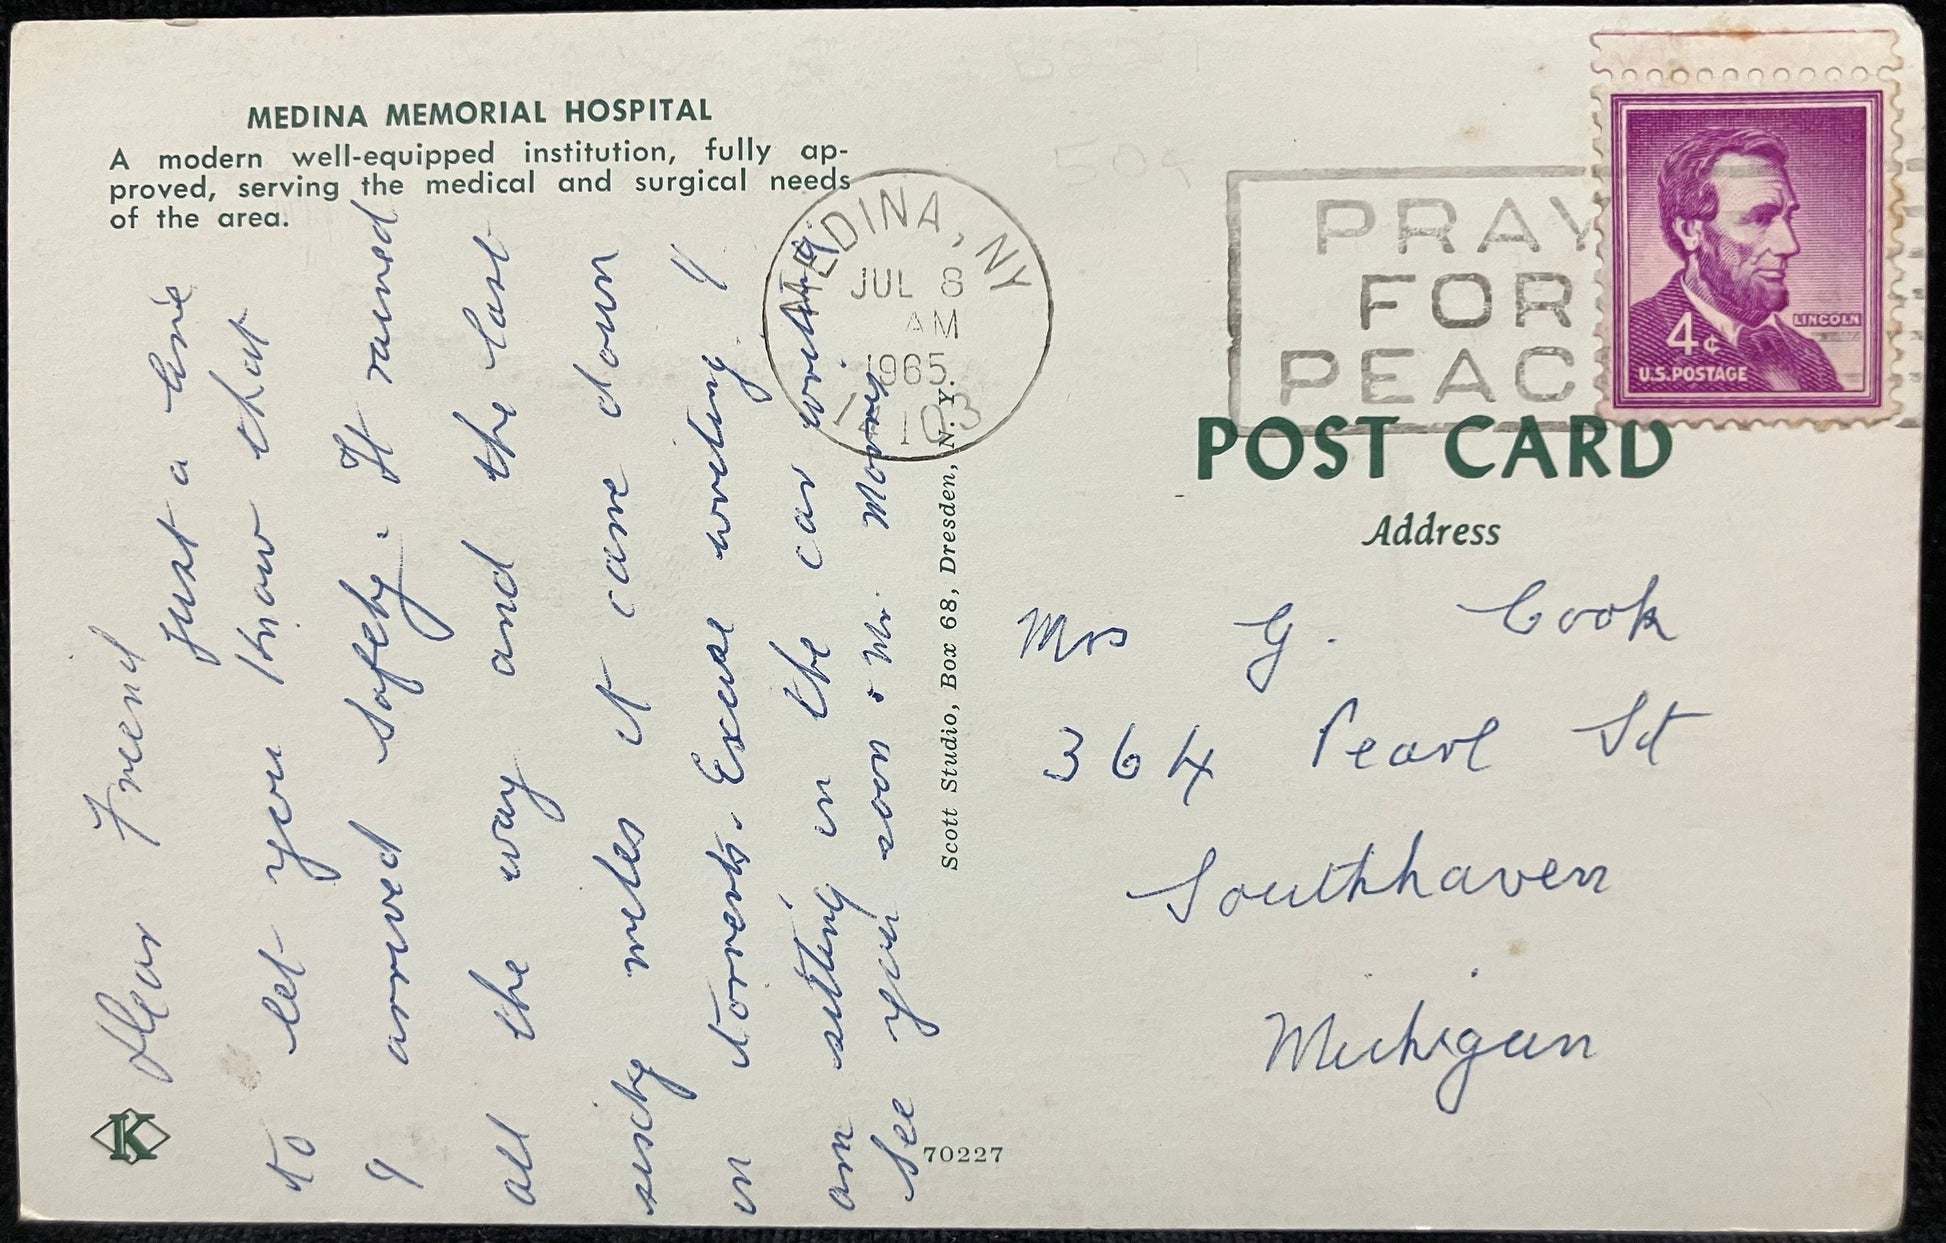 MEDINA MEMORIAL HOSPITAL
A modern well-equipped institution, fully ap-
proved, serving the medical and surgical needs
of the area.
Dear Friend
Just a line
to let you know that
I arrived safely. It rained
all the way and the last
sixty miles it came down
in torrents. Excuse writing I
am sitting in the car
See you soon. Mr. Morris
K
Scott Studio, Box 68, Dresden, N. Y.
70227
MEDINA, NY
JUL 8
AM
1965
PRAY
FOR
PEAC
LINCOLN
4¢
U.S. POSTAGE
POST CARD
Address
Mrs G. Cook
364 Pearl St
Southhaven
Michigan